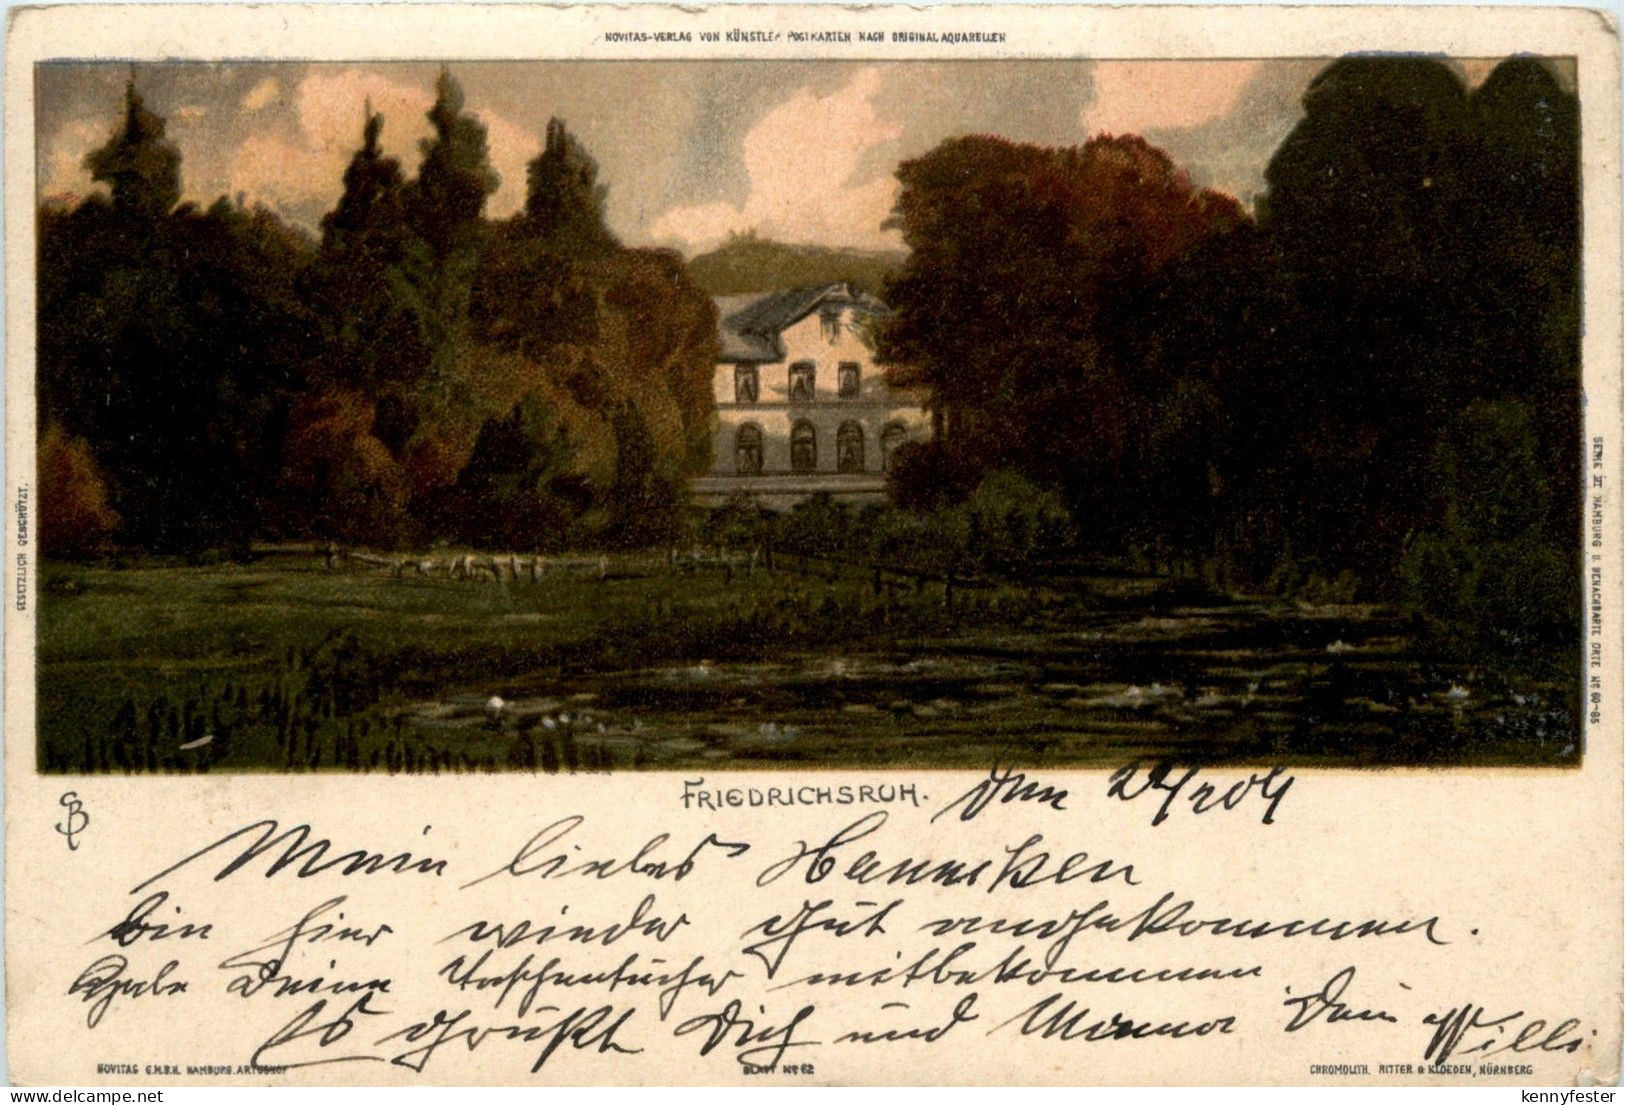 NOVITAS-VERLAG VON KÜNSTLER POSTKARTEN NACH ORIGINAL AQUARELLEN
GESETZLICH GESCHÜTZT.
SERIE VI HAMBURG U. BENACHBARTE ORTE № 60-85
FRIEDRICHSRUH.
den
Mein liebes Hannchen
bin hier wieder gut angekommen.
Habe Deine Taschentücher mitbekommen
Es grüßt Dich und Mama Dein Willi
NOVITAS G.M.B.H. HAMBURG. ARTUSHOF
BLATT № 62
CHROMOLITH. RITTER & KLOEDEN, NÜRNBERG
delcampe.net
kennyfester